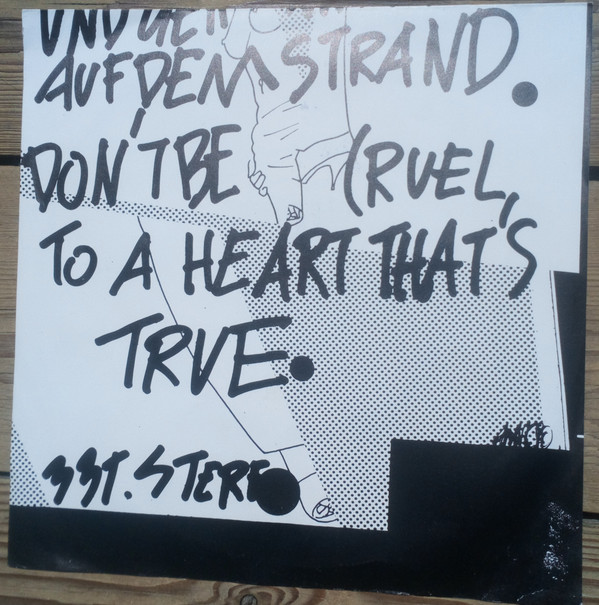 UND
AUF DEM STRAND.
DON'T BE CRUEL,
TO A HEART THAT'S
TRUE.
33T. STEREO